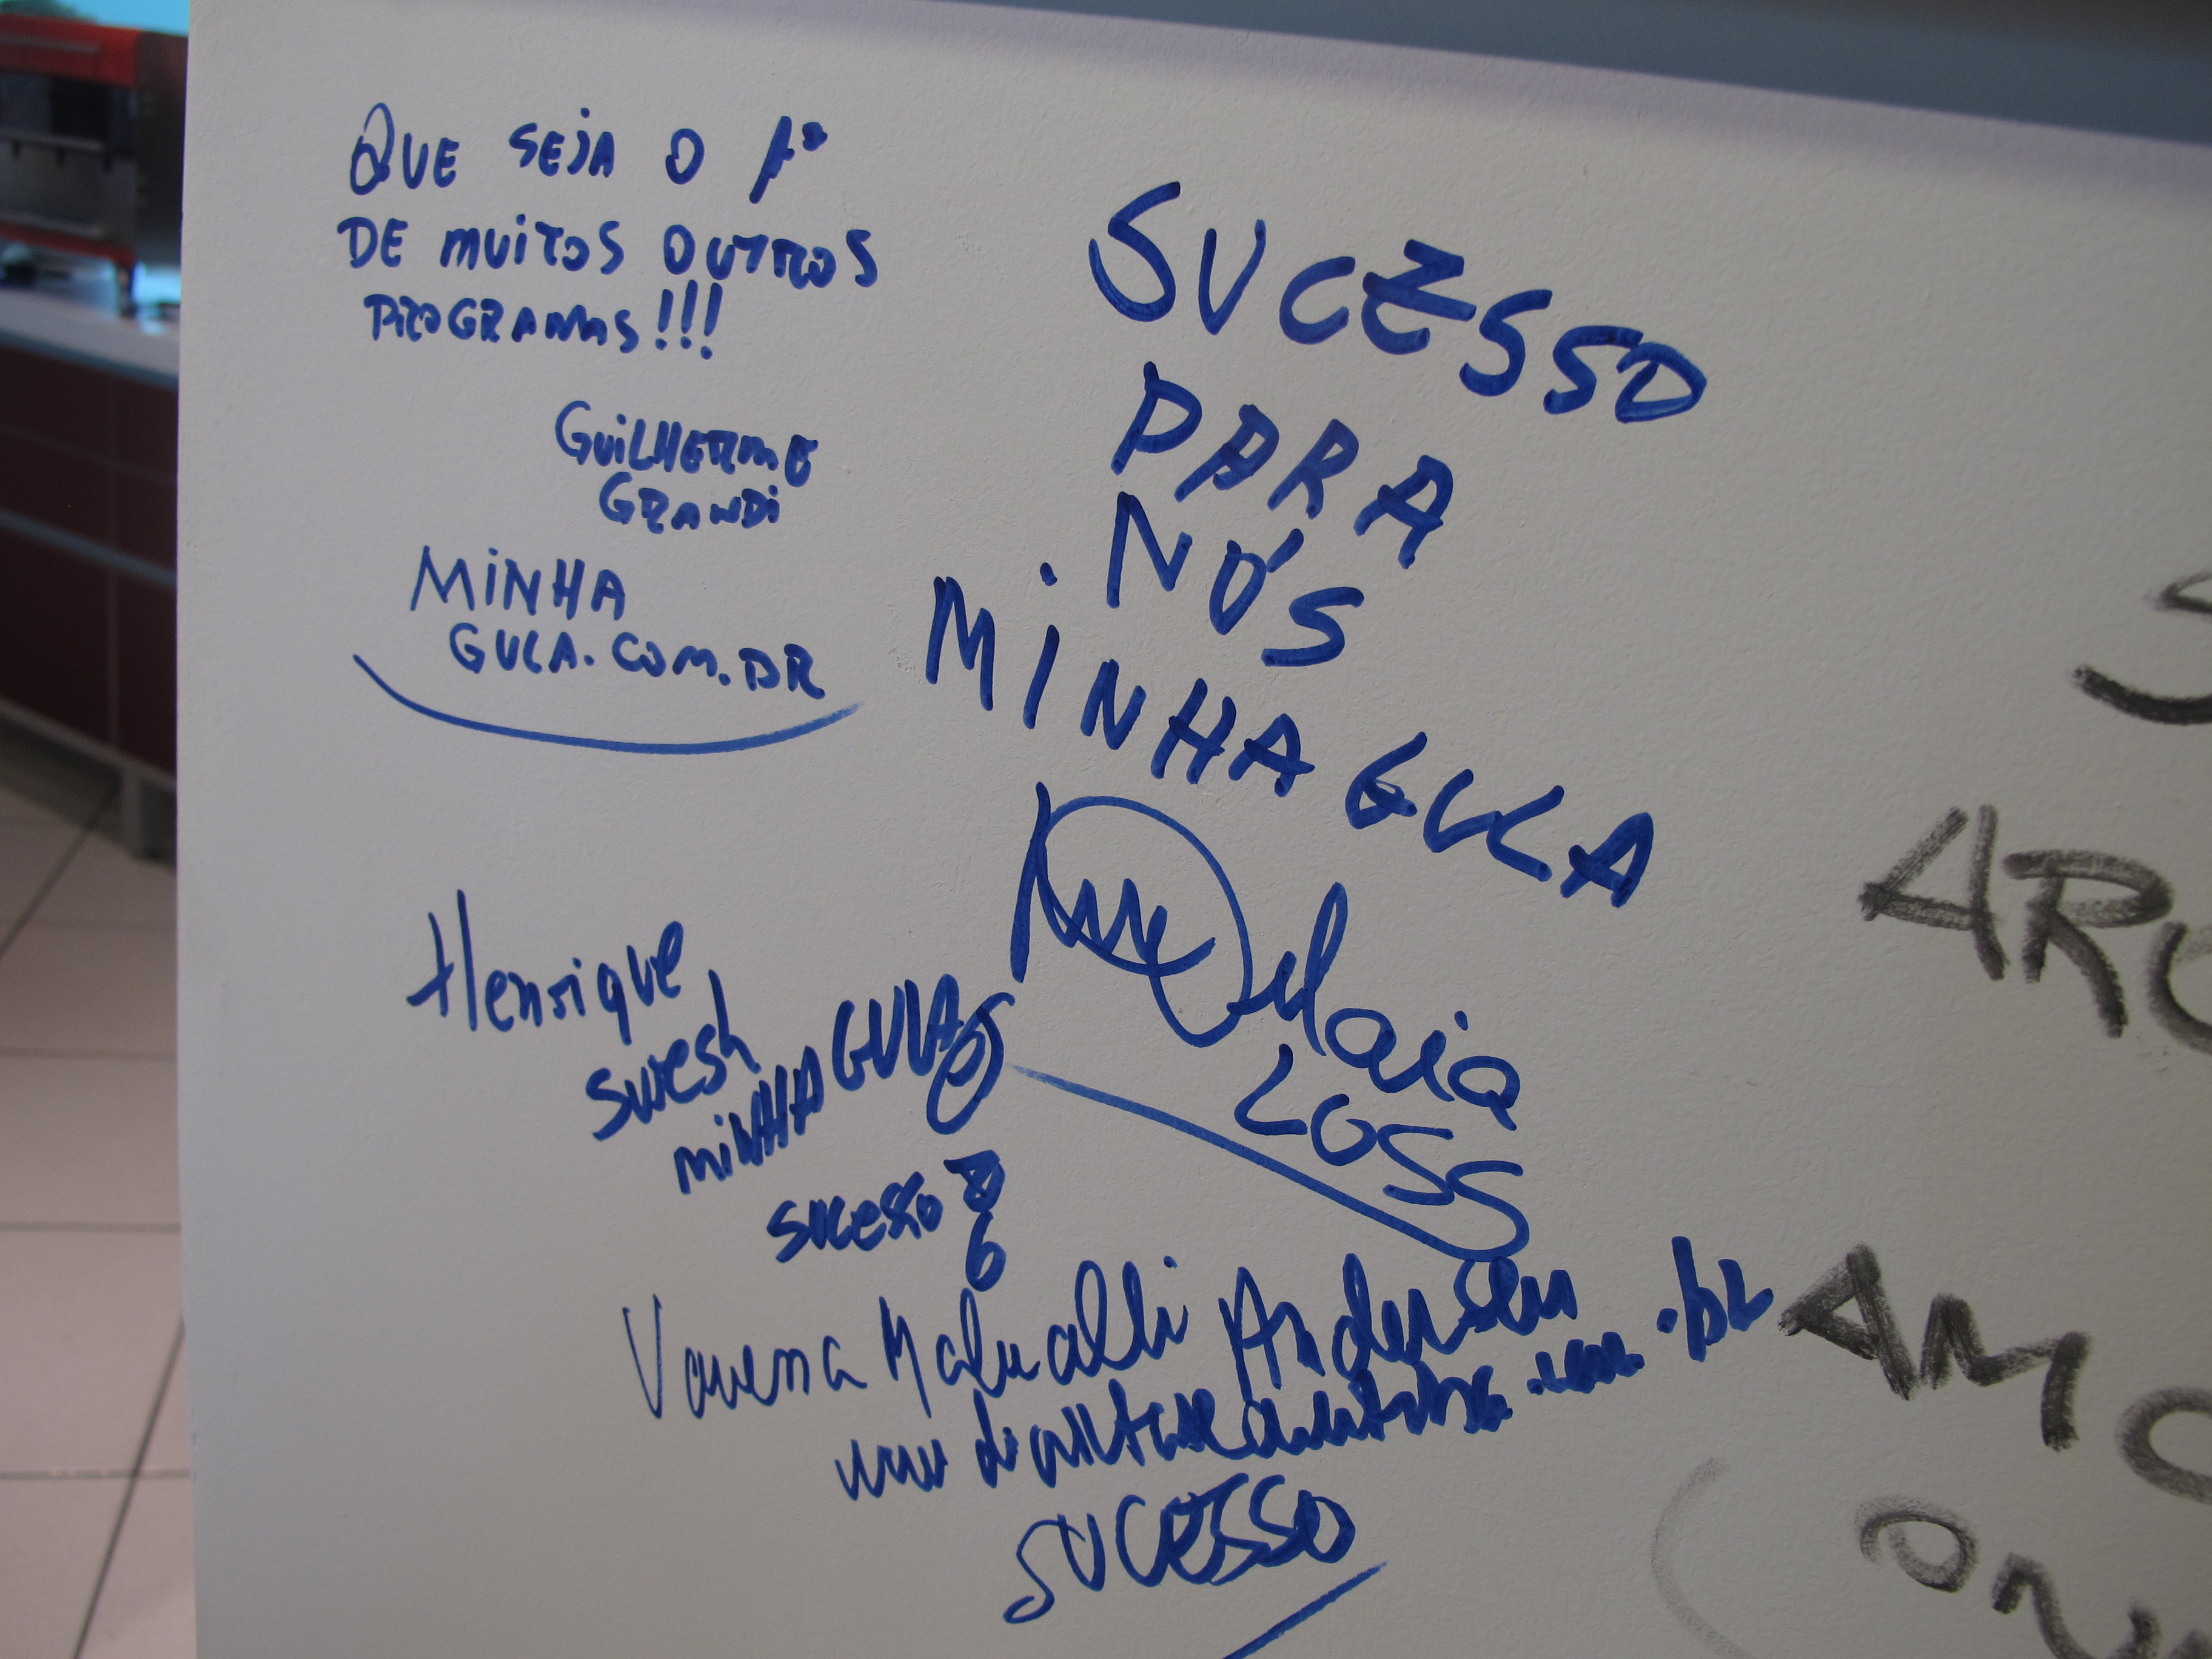 QUE SEJA O 1º
DE MUITOS OUTROS
PROGRAMAS!!!
GUILHERME
GRANDI
MINHA
GULA.COM.BR
SUCESSO
PARA
NÓS
MINHA GULA
Maia
LOSS
Henrique
MINHA GULA
sucesso
Vanessa Andersen
.com.br
SUCESSO
S
ARO
AMO